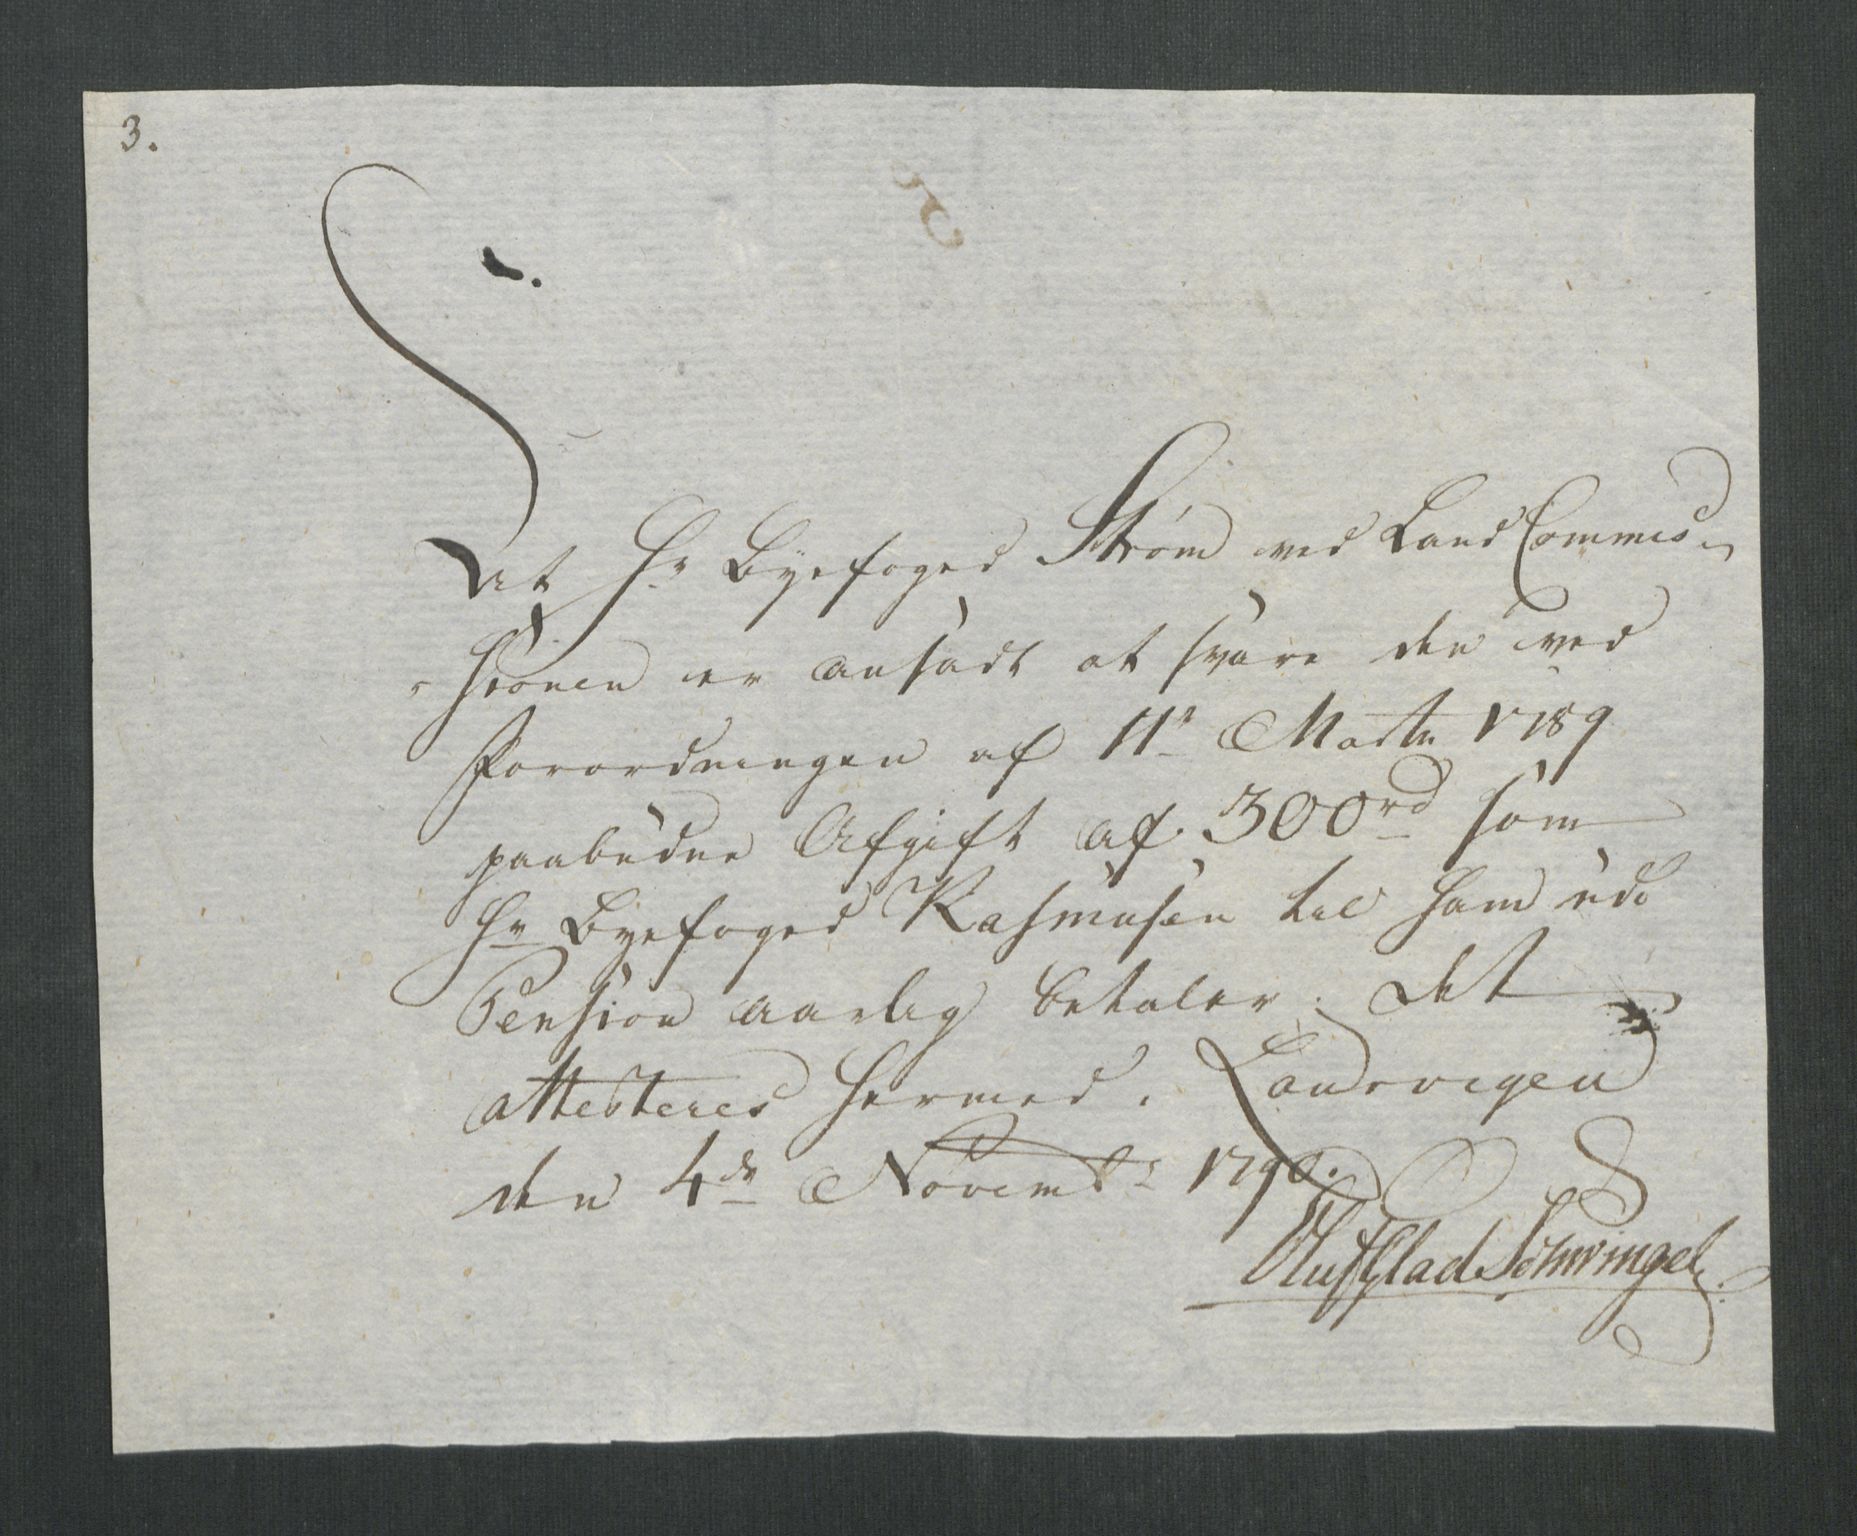 3.
At Hr Byefoged Strøm ved Land Commis-
sionen er ansadt at svare den ved
Forordningen af 11te Martii 1789
paabudne Afgift af 300rd som
Hr Byefoged Rasmusen til ham udi
Pension aarlig betaler. det
attesteres hermed.
den 4de Novembr 1790.